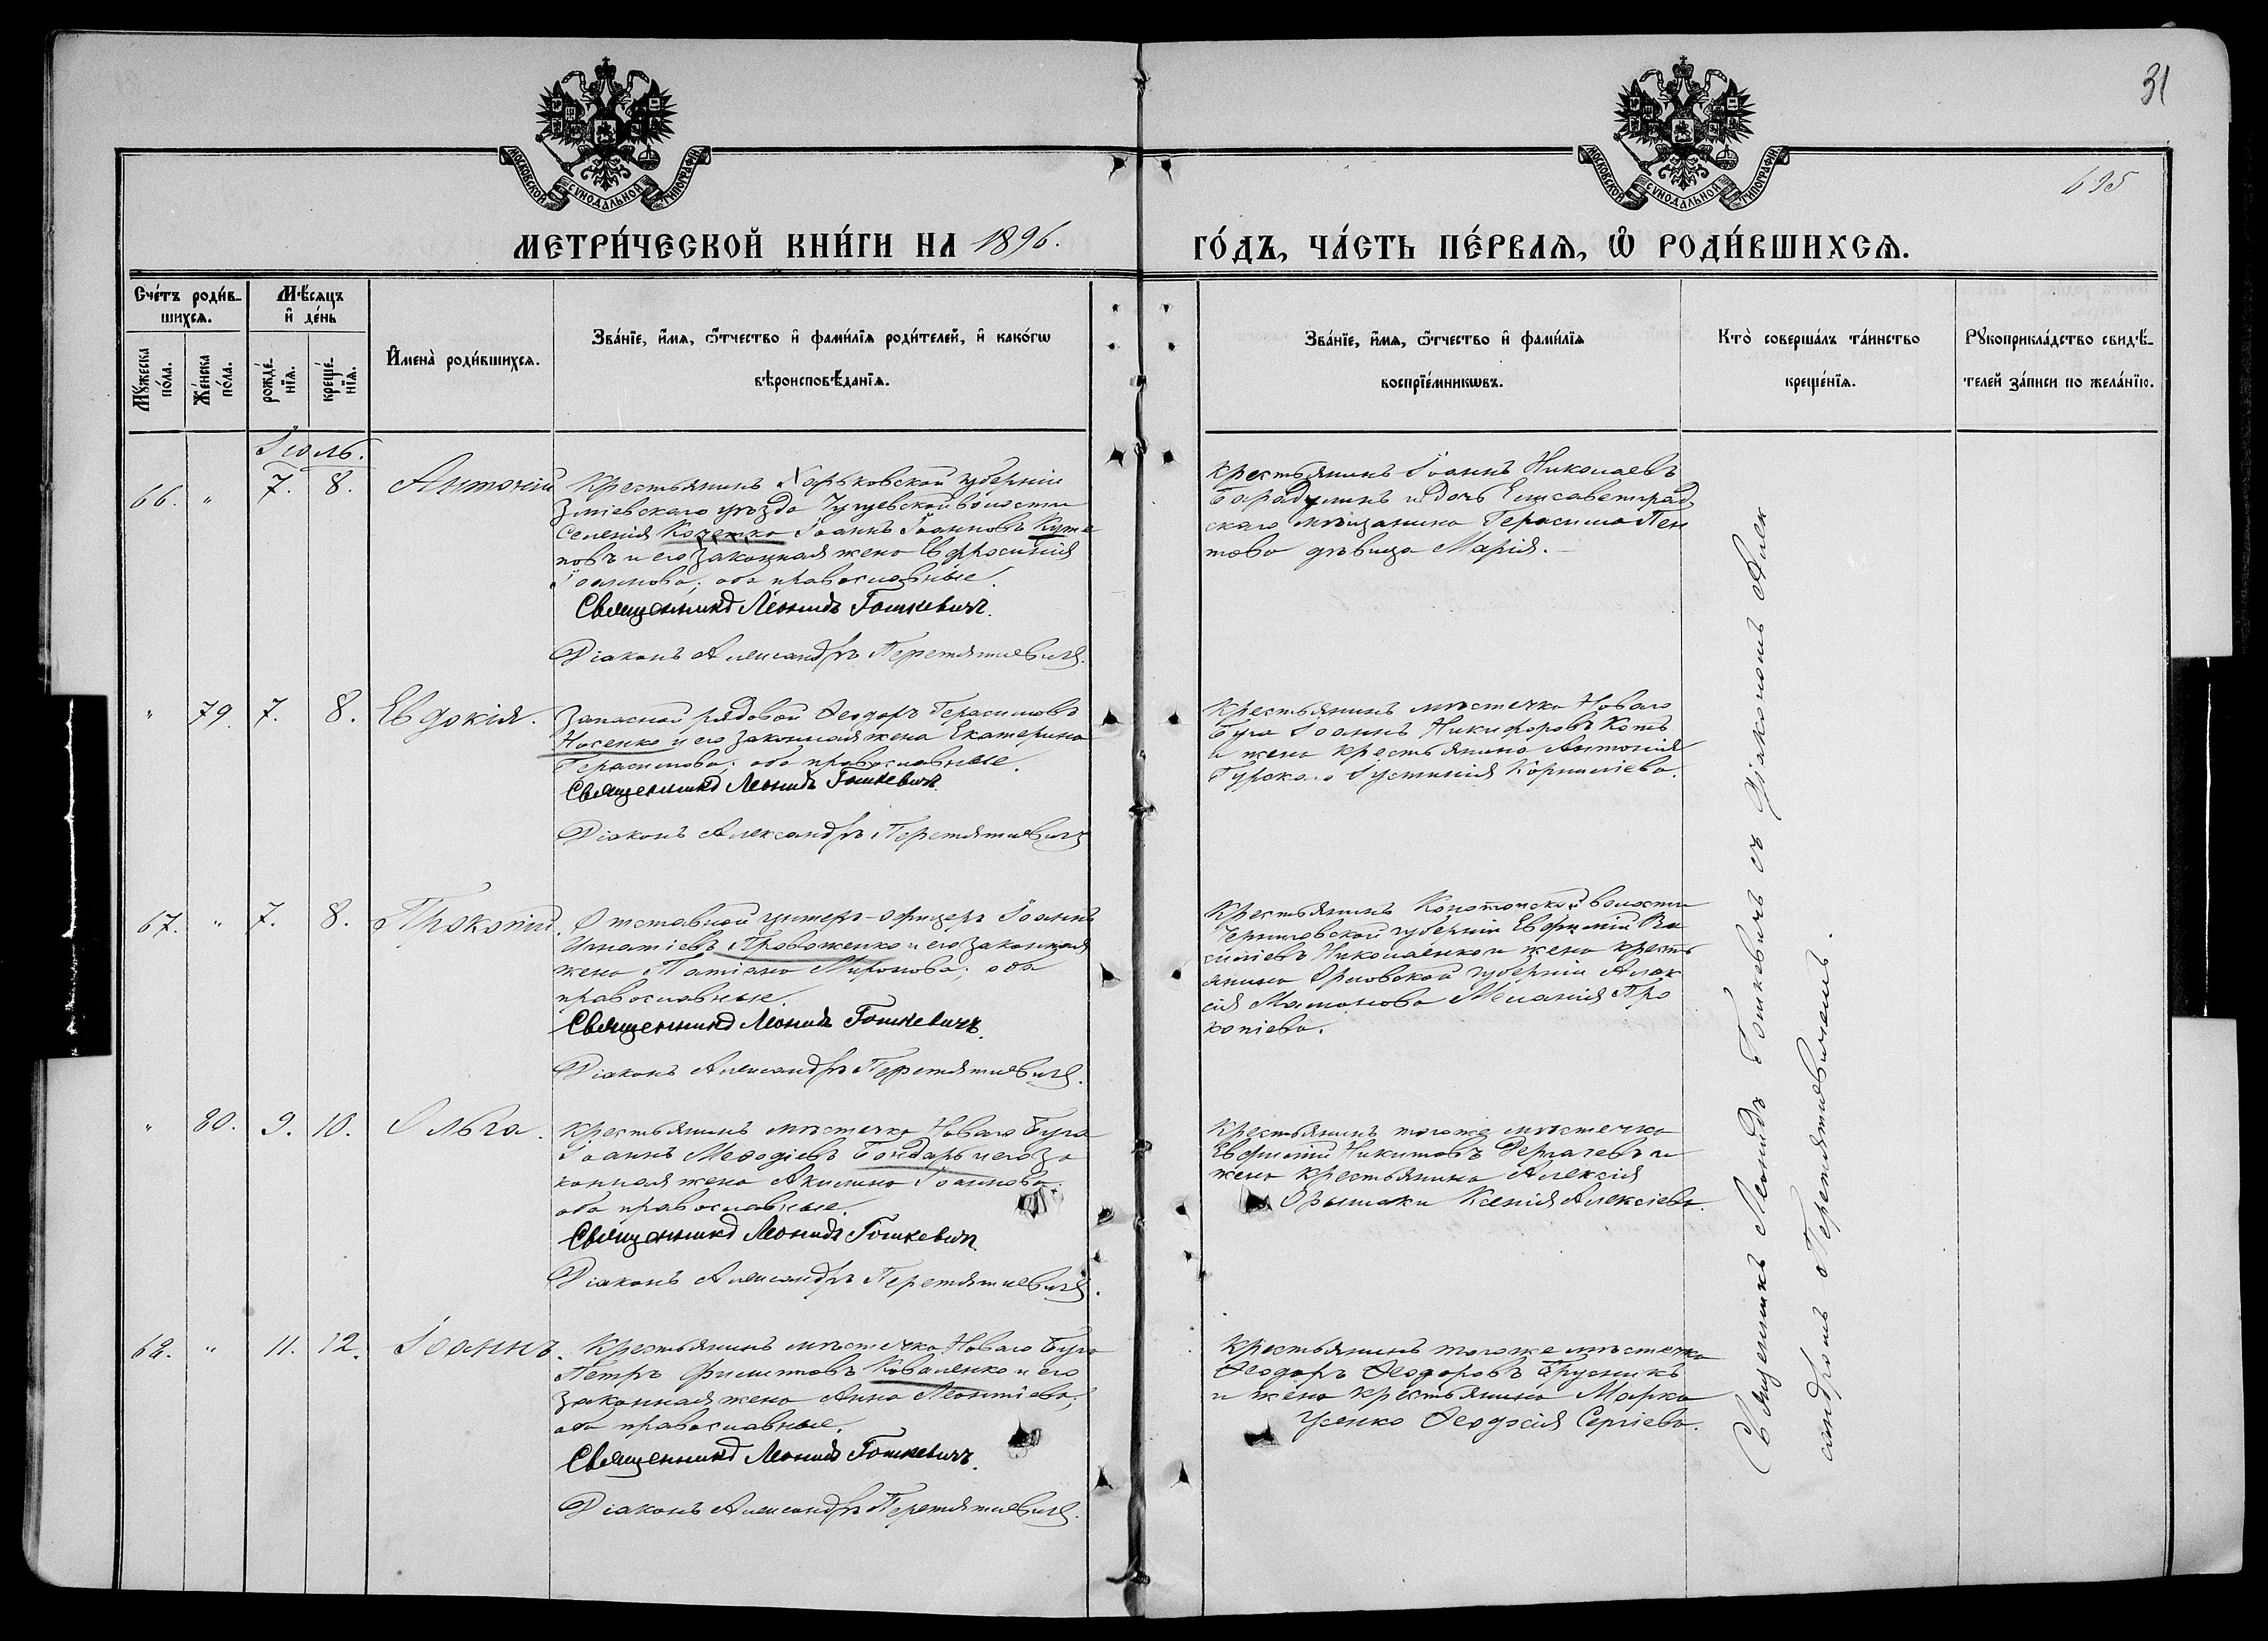 31
695
МОСКОВСКОЙ СУНОДАЛЬНОЙ ТИПОГРАФІИ
МОСКОВСКОЙ СУНОДАЛЬНОЙ ТИПОГРАФІИ
МЕТРИ́ЧЕСКОЙ КНИ́ГИ НА 1896.
ГО́ДЪ, ЧА́СТЬ ПЕ́РВАѦ, Ѿ РОДИ́ВШИХСѦ.
Сче́тъ роди́в-
шихсѧ.
Мѣ́сѧцъ
и҆ де́нь
Мꙋ́жеска
по́ла.
Же́нска
по́ла.
рожде́-
нїѧ.
креще́-
нїѧ.
И҆мена̀ роди́вшихсѧ.
Зва́нїе, и҆́мѧ, ѻ҆́тчество и҆ фами́лїѧ роди́телей, и҆ како́гѡ
вѣроисповѣ́данїѧ.
Зва́нїе, и҆́мѧ, ѻ҆́тчество и҆ фами́лїѧ
воспрїе́мникѡвъ.
Кто̀ соверша́лъ та́инство
креще́нїѧ.
Рꙋкоприкла́дство свидѣ́-
телей за́писи по жела́нїю.
Іюль.
66. " 7. 8. Антоній
Крестьянинъ Харьковской губерніи
Зміевскаго уѣзда Чугуевской волости
селенія Кочетка Іоаннъ Іоанновъ Куте
повъ и его законная жена Евфросинія
Іоаннова; оба православные.
Священникъ Леонидъ Гошкевичъ.
Діаконъ Александръ Перетяткевичъ.
Крестьянинъ Іоаннъ Николаевъ
Барадулинъ и дочь Елисаветград
скаго мѣщанина Герасима Пен
това дѣвица Марія.
" 79. 7. 8. Евдокія.
Запасной рядовой Ѳеодоръ Герасимовъ
Носенко и его законная жена Екатерина
Герасимова; оба православные.
Священникъ Леонидъ Гошкевичъ
Діаконъ Александръ Перетяткевичъ
Крестьянинъ мѣстечка Новаго
Буга Іоаннъ Никифоровъ Котъ
и жена крестьянина Антонія
Гурскаго Іустинія Корниліева.
67. " 7. 8. Прокопій.
Отставной унтеръ-офицеръ Іоаннъ
Игнатіевъ Проваженко и его законная
жена Татіана Миронова; оба
православные.
Священникъ Леонидъ Гошкевичъ.
Діаконъ Александръ Перетяткевичъ.
Крестьянинъ Конотопской волости
Черниговской губерніи Евфимій Ва
силіевъ Николаенко и жена кресть
янина Орловской губерніи Алек
сія Маманова Меланія Про
копіева.
" 80. 9. 10. Ольга.
Крестьянинъ мѣстечка Новаго Буга
Іоаннъ Меѳодіевъ Бондарь и его за
конная жена Акилина Іоаннова.
оба православные.
Священникъ Леонидъ Гошкевичъ.
Діаконъ Александръ Перетяткевичъ.
Крестьянинъ тогоже мѣстечка
Евфимій Никитовъ Дергачевъ и
жена крестьянина Алексія
Ксенія Алексіева.
68. " 11. 12. Іоаннъ.
Крестьянинъ мѣстечка Новаго Буга
Петръ Филипповъ Коваленко и его
законная жена Анна Леонтіева;
оба православные.
Священникъ Леонидъ Гошкевичъ.
Діаконъ Александръ Перетяткевичъ.
Крестьянинъ тогоже мѣстечка
Ѳеодоръ Ѳеодоровъ Брусникъ
и жена крестьянина Марка
Усенко Ѳеодосія Сергіева.
Священникъ Леонидъ Гошкевичъ съ діакономъ Алек
сандромъ Перетяткевичемъ.